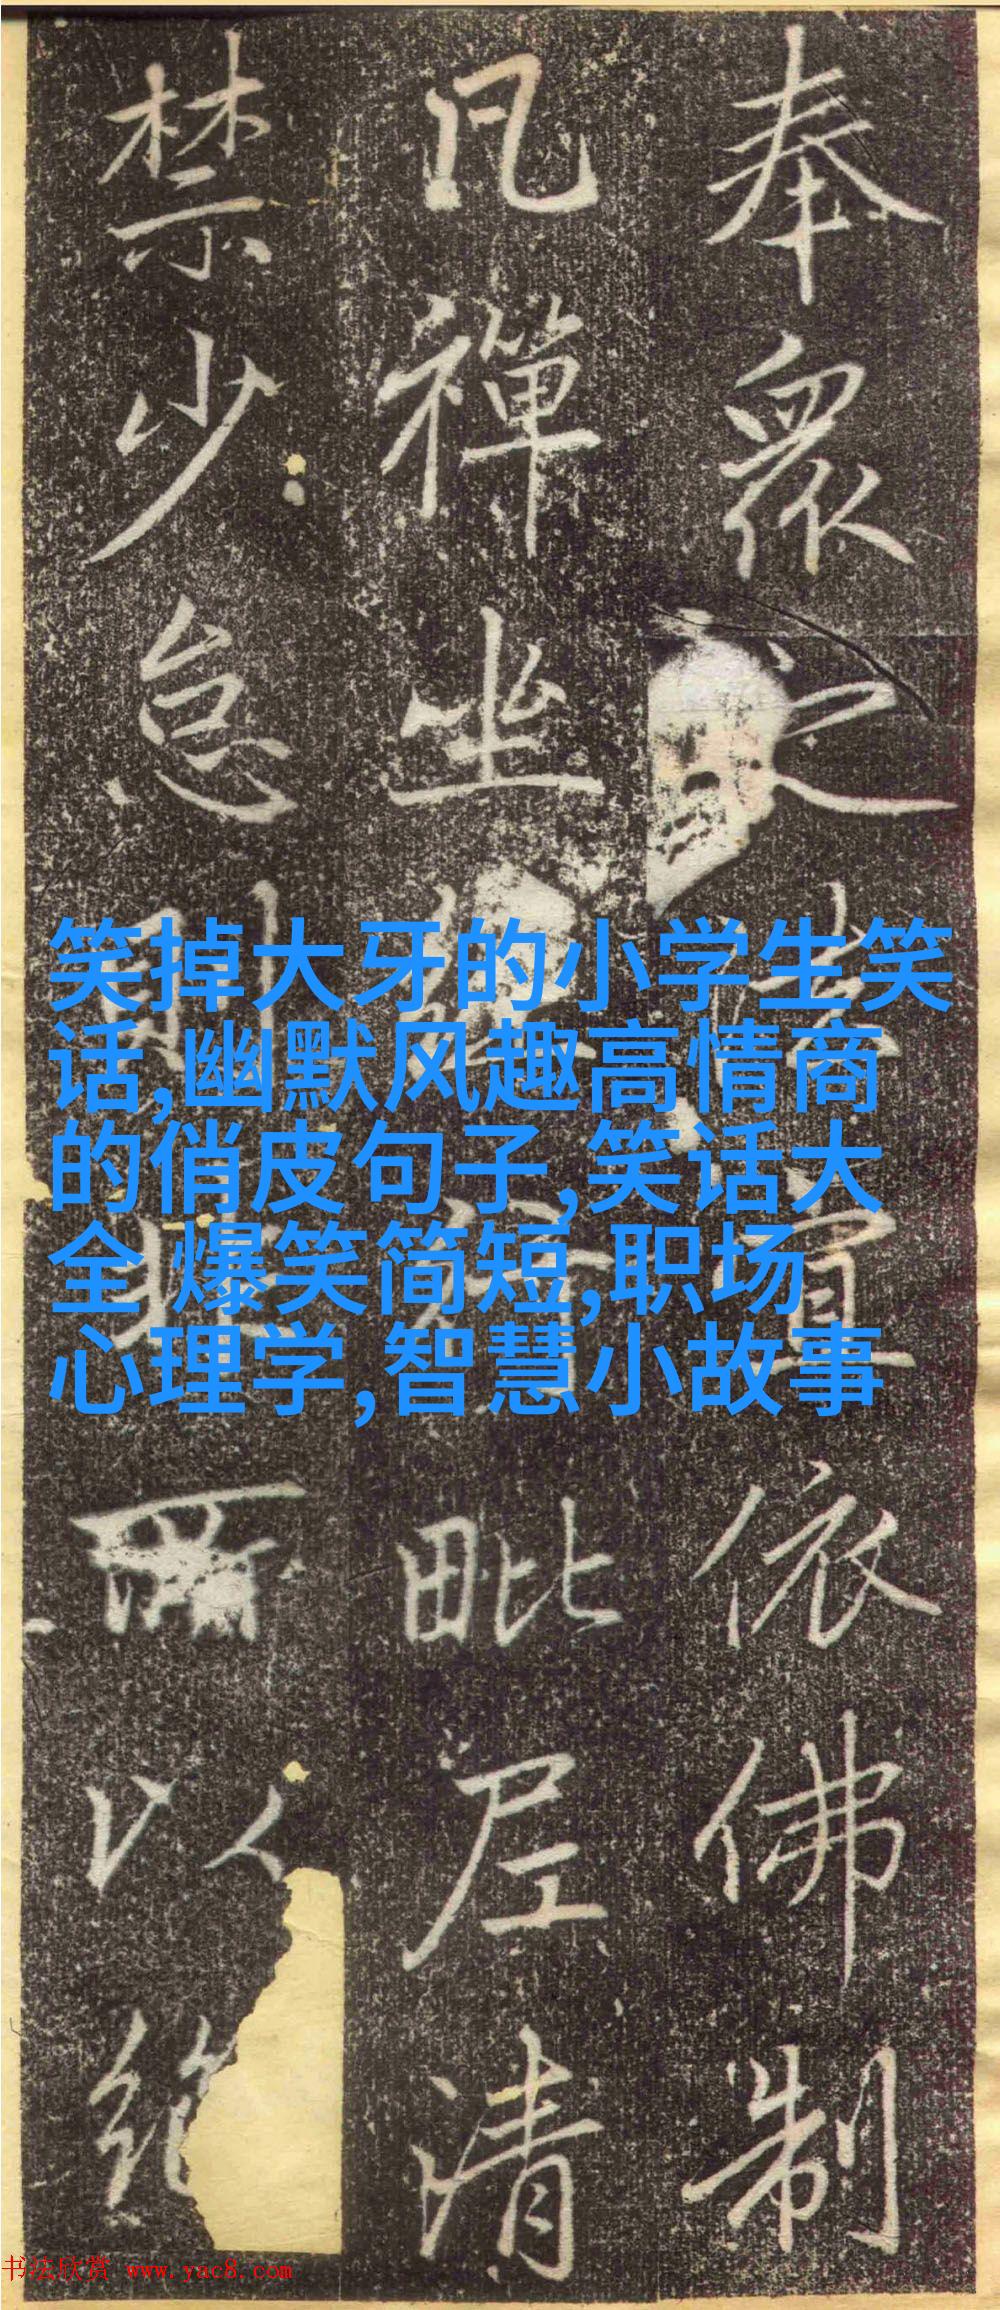 奉眾之法宜依佛制
凡禪坐行毗尼清
禁少怠則非所以
笑掉大牙的小学生笑
话,幽默风趣高情商
的俏皮句子,笑话大
全 爆笑简短,职场
心理学,智慧小故事
书法欣赏 www.yac8.com